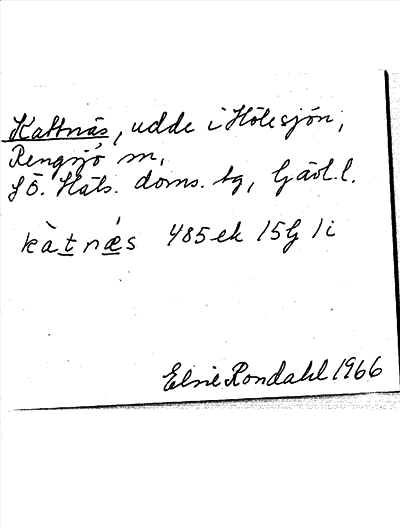 Kattnäs, udde i Hölesjön,
Rengsjö sn,
Sö. Häls. doms. tg, Gävl. l.
kàt̲nǽ̲s 485 ek 15G 1i
Elsie Rondahl 1966